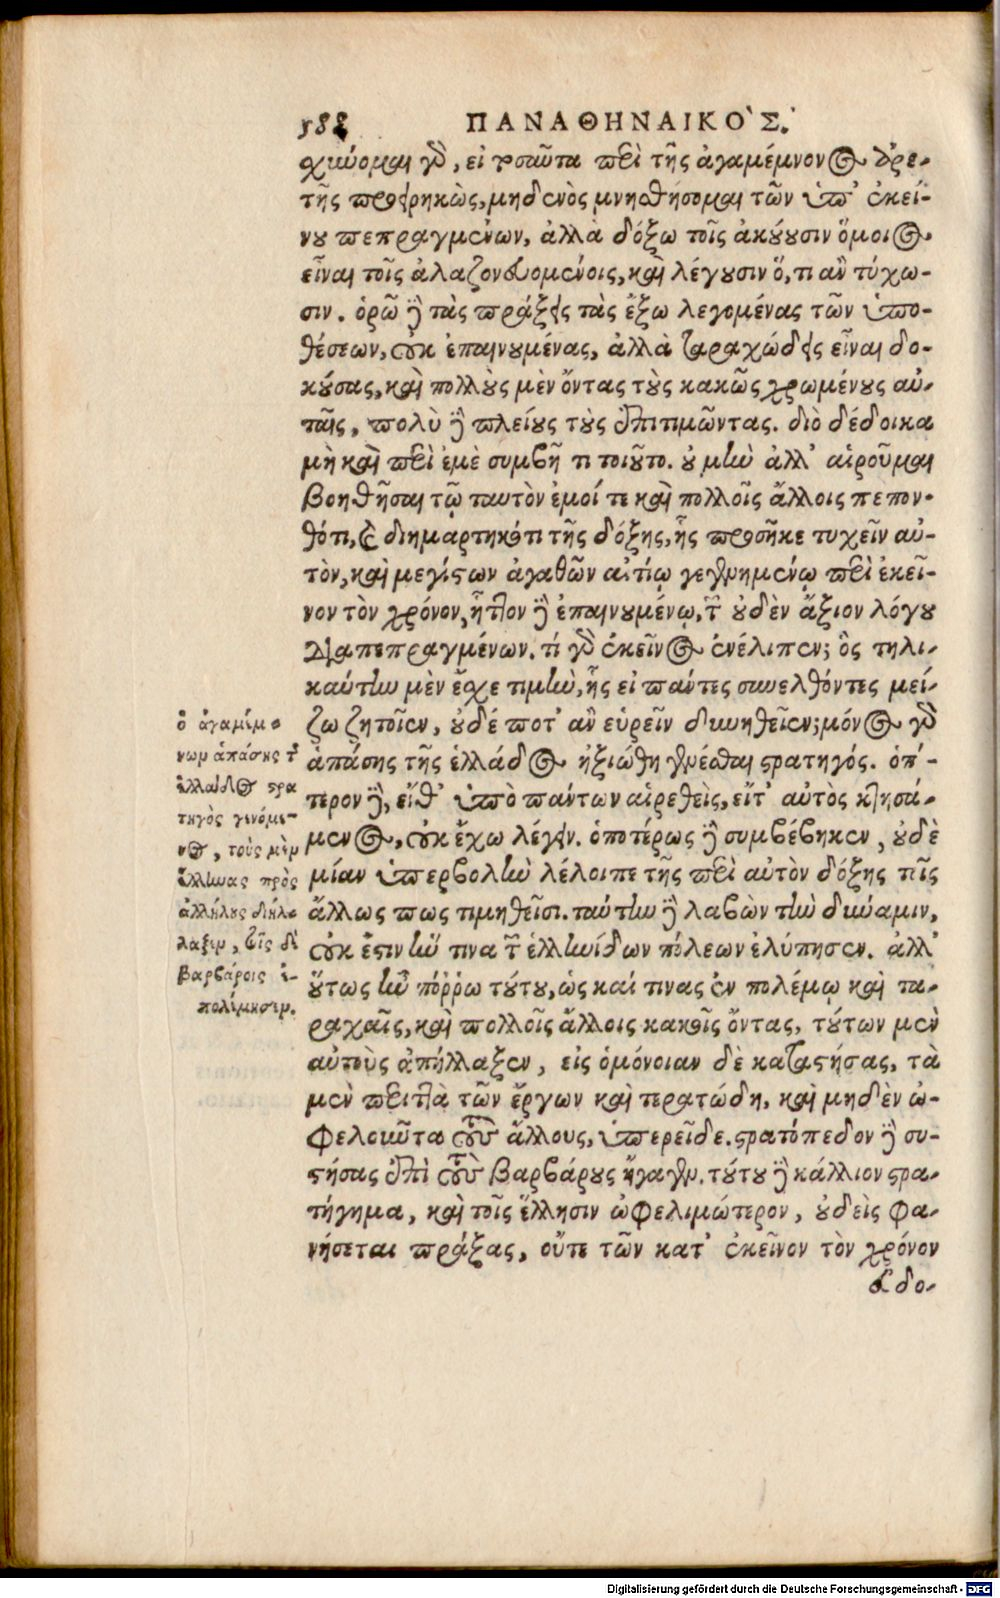 188 ΠΑΝΑΘΗΝΑΙΚΟ`Σ.
χύνομαι γὰρ, εἰ τοσαῦτα περὶ τῆς ἀγαμέμνονος ἀρε-
τῆς προειρηκὼς, μηδενὸς μνησθήσομαι τῶν ὑπ' ἐκεί-
νου πεπραγμένων, ἀλλὰ δόξω τοῖς ἀκούουσιν ὅμοιος
εἶναι τοῖς ἀλαζονευομένοις, καὶ λέγουσιν ὅ, τι ἂν τύχω-
σιν. ὁρῶ δὲ τὰς πράξεις τὰς ἔξω λεγομένας τῶν ὑπο-
θέσεων, οὐκ ἐπαινουμένας, ἀλλὰ ταραχώδεις εἶναι δο-
κούσας, καὶ πολλοὺς μὲν ὄντας τοὺς κακῶς χρωμένους αὐ-
ταῖς, πολὺ δὲ πλείους τοὺς ἐπιτιμῶντας. διὸ δέδοικα
μὴ καὶ περὶ ἐμὲ συμβῇ τι τοιοῦτο. οὐ μὴν ἀλλ' αἱροῦμαι
βοηθῆσαι τῷ ταυτὸν ἐμοί τε καὶ πολλοῖς ἄλλοις πεπον-
θότι, καὶ διημαρτηκότι τῆς δόξης, ἧς προσῆκε τυχεῖν αὐ-
τὸν, καὶ μεγίστων ἀγαθῶν αἰτίῳ γεγενημένῳ περὶ ἐκεῖ-
νον τὸν χρόνον, ἧττον δὲ ἐπαινουμένῳ, τῶν οὐδὲν ἄξιον λόγου
διαπεπραγμένων. τί γὰρ ἐκεῖνος ἐνέλιπεν; ὃς τηλι-
καύτην μὲν ἔσχε τιμὴν, ἧς εἰ πάντες συνελθόντες μεί-
ζω ζητοῖεν, οὐδέ ποτ' ἂν εὑρεῖν δυνηθεῖεν; μόνος γὰρ
ἁπάσης τῆς ἑλλάδος ἠξιώθη γενέσθαι στρατηγός. ὁπό-
τερον δὲ, εἴθ' ὑπὸ πάντων αἱρεθεὶς, εἴτ' αὐτὸς κτησά-
μενος, οὐκ ἔχω λέγειν. ὁποτέρως δὲ συμβέβηκεν, οὐδε
μίαν ὑπερβολὴν λέλοιπε τῆς περὶ αὐτὸν δόξης τοῖς
ἄλλως πως τιμηθεῖσι. ταύτην δὲ λαβὼν τὴν δύναμιν,
οὐκ ἔστιν ἥν τινα τῶν ἑλληνίδων πόλεων ἐλύπησεν. ἀλλ'
οὕτως ἦν πόῤῥω τούτου, ὡς καί τινας ἐν πολέμῳ καὶ τα-
ραχαῖς, καὶ πολλοῖς ἄλλοις κακοῖς ὄντας, τούτων μὲν
αὐτοὺς ἀπήλλαξεν, εἰς ὁμόνοιαν δὲ καταστήσας, τὰ
μὲν περιττὰ τῶν ἔργων καὶ τερατώδη, καὶ μηδὲν ὠ-
φελοῦντα τοὺς ἄλλους, ὑπερεῖδε. στρατόπεδον δὲ συ-
στήσας ἐπὶ τοὺς βαρβάρους ἤγαγεν. τούτου δὲ κάλλιον στρα-
τήγημα, καὶ τοῖς ἕλλησιν ὠφελιμώτερον, οὐδεὶς φα-
νήσεται πράξας, οὔτε τῶν κατ' ἐκεῖνον τὸν χρόνον
εὐδο-
ὁ ἀγαμέμ-
νων ἁπάσης τῆς
ἑλλάδος στρα
τηγὸς γενόμε-
νος, τοὺς μὲν
ἕλληνας πρὸς
ἀλλήλους διήλ-
λαξεν, τοῖς δὲ
βαρβάροις ἐ-
πολέμησεν.
Digitalisierung gefördert durch die Deutsche Forschungsgemeinschaft - DFG